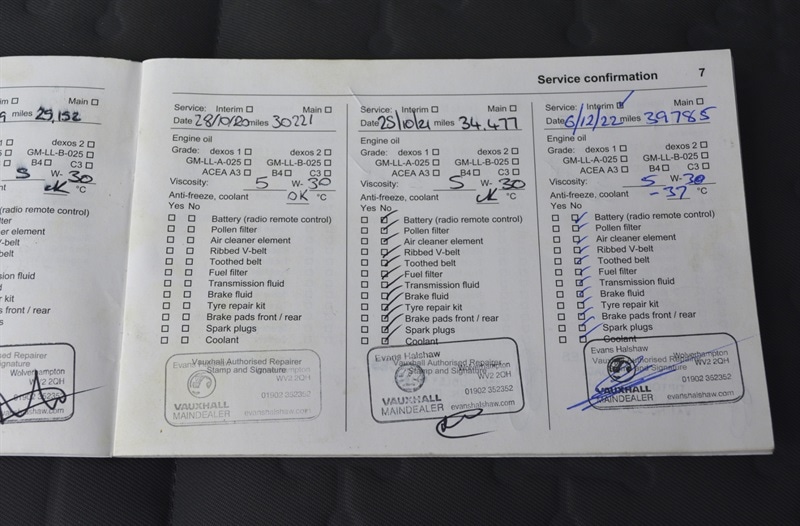 Service confirmation 7
im ☐ Main ☐
9 miles 29,152
1 ☐ dexos 2 ☐
25 ☐ GM-LL-B-025 ☐
3 ☐ B4 ☐ C3 ☐
5 W- 30
ant OK °C
(radio remote control)
lter
er element
V-belt
belt
r
sion fluid
uid
r kit
ds front / rear
gs
sed Repairer
Signature
Wolverhampton
WV2 2QH
01902 352352
haw.com
Service: Interim ☐ Main ☐
Date 28/10/20 miles 30221
Engine oil
Grade: dexos 1 ☐ dexos 2 ☐
GM-LL-A-025 ☐ GM-LL-B-025 ☐
ACEA A3 ☐ B4 ☐ C3 ☐
Viscosity: 5 W- 30
Anti-freeze, coolant OK °C
Yes No
☐ ☐ Battery (radio remote control)
☐ ☐ Pollen filter
☐ ☐ Air cleaner element
☐ ☐ Ribbed V-belt
☐ ☐ Toothed belt
☐ ☐ Fuel filter
☐ ☐ Transmission fluid
☐ ☐ Brake fluid
☐ ☐ Tyre repair kit
☐ ☐ Brake pads front / rear
☐ ☐ Spark plugs
☐ ☐ Coolant
Vauxhall Authorised Repairer
Stamp and Signature
WV2 2QH
01902 352352
VAUXHALL
MAINDEALER evanshalshaw.com
Service: Interim ☐ Main ☐
Date 25/10/21 miles 34,477
Engine oil
Grade: dexos 1 ☐ dexos 2 ☐
GM-LL-A-025 ☐ GM-LL-B-025 ☐
ACEA A3 ☐ B4 ☐ C3 ☐
Viscosity: 5 W- 30
Anti-freeze, coolant OK °C
Yes No
☐ ☑ Battery (radio remote control)
☐ ☑ Pollen filter
☐ ☑ Air cleaner element
☐ ☑ Ribbed V-belt
☐ ☑ Toothed belt
☐ ☑ Fuel filter
☐ ☑ Transmission fluid
☐ ☑ Brake fluid
☐ ☑ Tyre repair kit
☐ ☑ Brake pads front / rear
☐ ☑ Spark plugs
☐ ☑ Coolant
Evans Halshaw
Vauxhall Authorised Repairer
Stamp and Signature
WV2 2QH
01902 352352
VAUXHALL
MAINDEALER evanshalshaw.com
Service: Interim ☑ Main ☐
Date 6/12/22 miles 39785
Engine oil
Grade: dexos 1 ☐ dexos 2 ☐
GM-LL-A-025 ☐ GM-LL-B-025 ☐
ACEA A3 ☐ B4 ☐ C3 ☐
Viscosity: 5 W- 30
Anti-freeze, coolant -37 °C
Yes No
☐ ☑ Battery (radio remote control)
☐ ☑ Pollen filter
☐ ☑ Air cleaner element
☐ ☑ Ribbed V-belt
☐ ☑ Toothed belt
☐ ☑ Fuel filter
☐ ☑ Transmission fluid
☐ ☑ Brake fluid
☐ ☑ Tyre repair kit
☐ ☑ Brake pads front / rear
☐ ☑ Spark plugs
☐ ☑ Coolant
Evans Halshaw Wolverhampton
Vauxhall Authorised Repairer
Stamp and Signature
WV2 2QH
01902 352352
VAUXHALL
MAINDEALER evanshalshaw.com